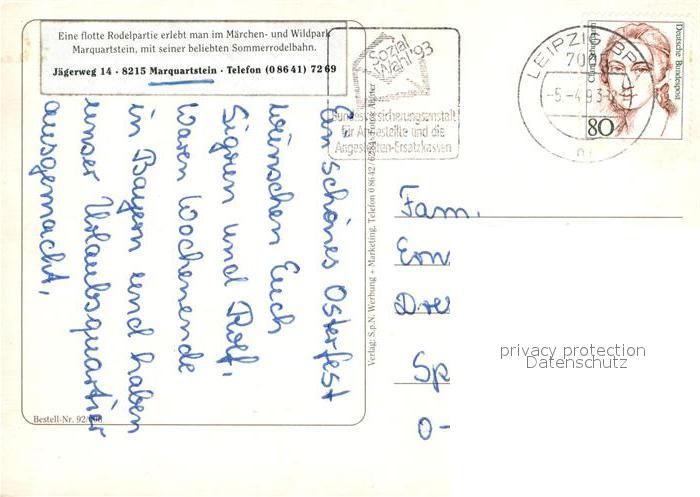 Eine flotte Rodelpartie erlebt man im Märchen- und Wildpark
Marquartstein, mit seiner beliebten Sommerrodelbahn.
Jägerweg 14 · 8215 Marquartstein · Telefon (0 86 41) 72 69
Ein schönes Osterfest
wünschen Euch
Sigrun und Rolf.
Waren Wochenende
in Bayern und haben
unser Urlaubsquartier
ausgemacht.
Bestell-Nr. 92/
Verlag: S.p.N. Werbung + Marketing, Telefon 0 86 42/62
Sozial
Wahl '93
Bundesversicherungsanstalt
für Angestellte und die
Angestellten-Ersatzkassen
LEIPZIG BPA
-5.-4.93
Deutsche Bundespost
80
Fam.
Ern
Dre
Sp
O-
privacy protection
Datenschutz